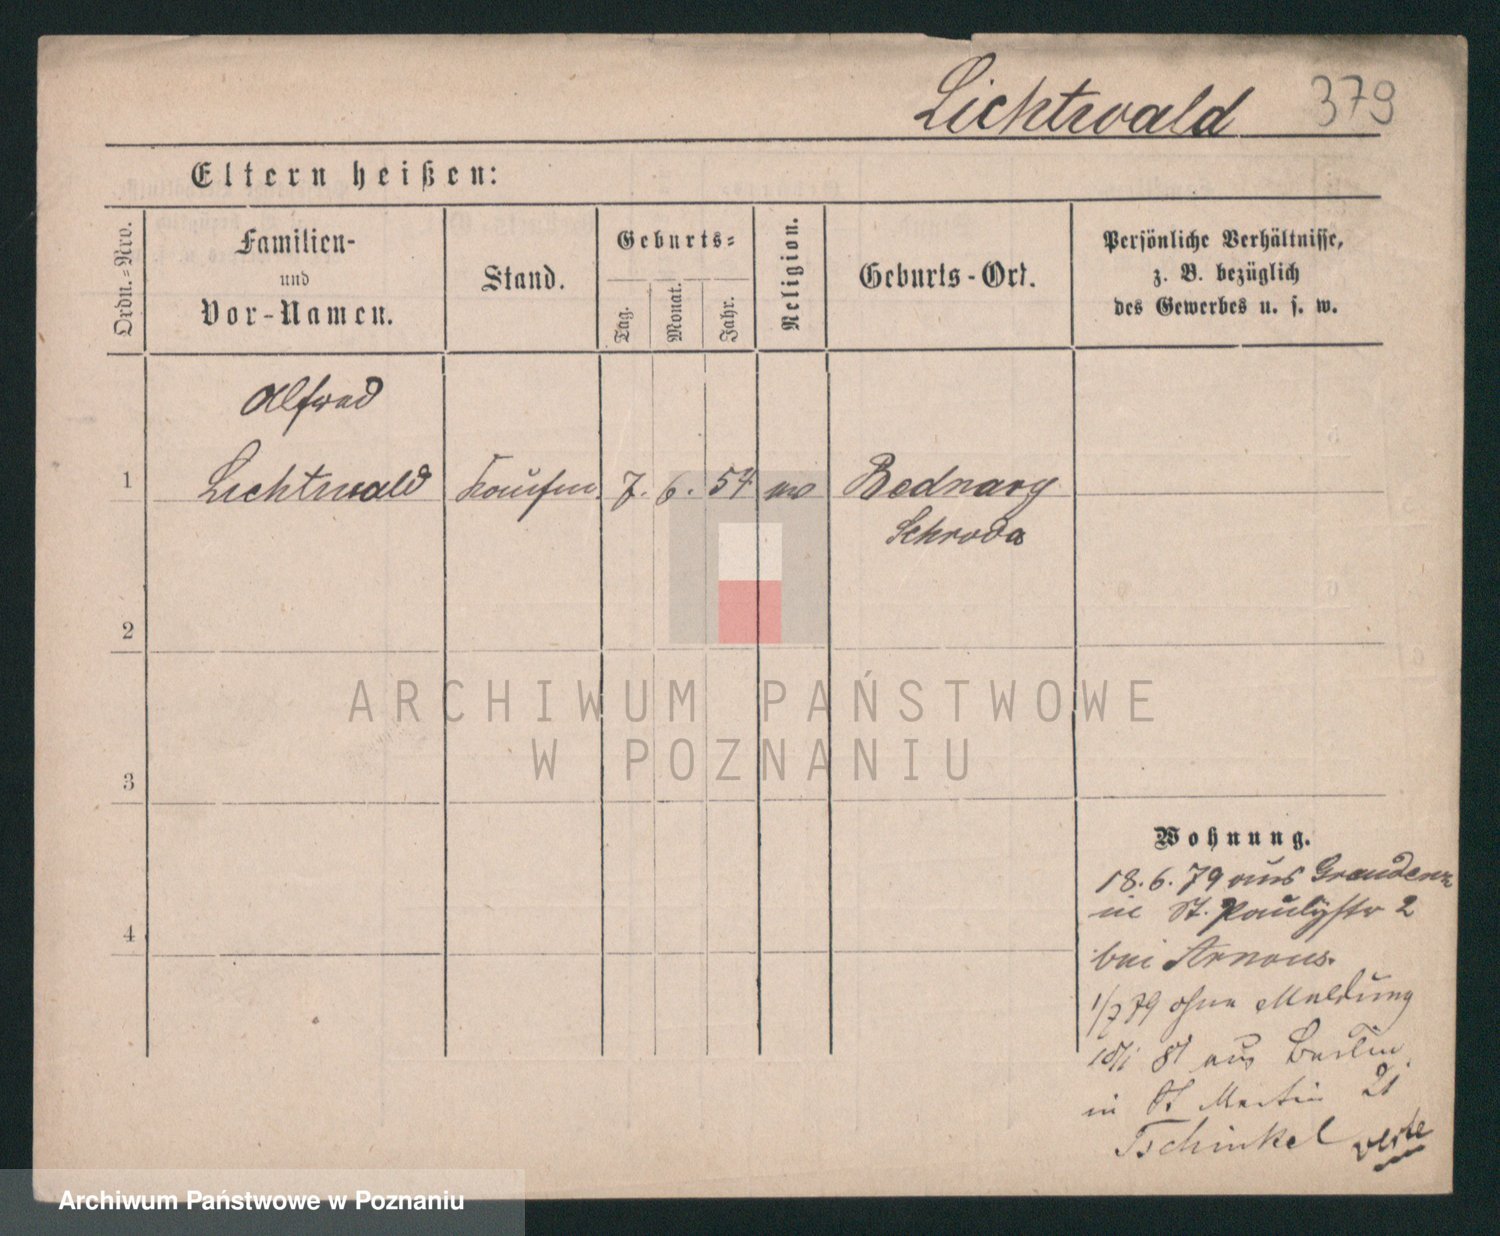 Lichtwald 379
Eltern heißen:
Ordn.=Nro.
Familien-
und
Vor-Namen.
Stand.
Geburts=
Tag.
Monat.
Jahr.
Religion.
Geburts-Ort.
Persönliche Verhältnisse,
z. B. bezüglich
des Gewerbes u. s. w.
Alfred
1 Lichtwald Kaufm 7. 6. 54 Bednary
Schroda
2
3
4
Wohnung.
18. 6. 79 aus Graudenz
in St. Paulystr 2
bei Arnous.
1/7 79 ohne Meldung
81 aus Berlin
in St Martin 21
Tschinkel verte
ARCHIWUM PAŃSTWOWE
W POZNANIU
Archiwum Państwowe w Poznaniu